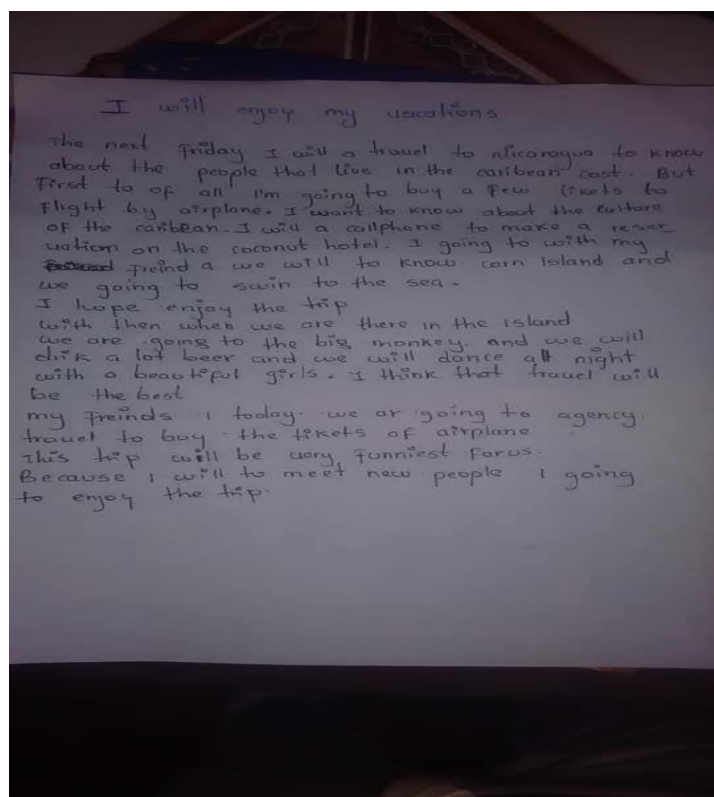 I will enjoy my vacations
The next Friday I will a travel to nicaragua to know
about the people that live in the caribean cost. But
First to of all I'm going to buy a few tikets to
Flight by airplane. I want to know about the culture
of the caribean. I will a callphone to make a reser
vation on the coconut hotel. I going to with my
freind a we will to know corn Island and
we going to swin to the sea.
I hope enjoy the trip
with then when we are there in the island
we are going to the big monkey. and we will
drik a lot beer and we will dance all night
with a beautiful girls. I think that travel will
be the best
my Freinds I today we ar going to agency
travel to buy the tikets of airplane
This trip will be very Funniest Forus.
Because I will to meet new people I going
to enjoy the trip.